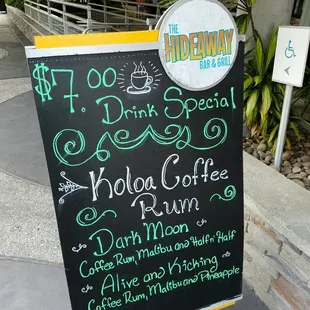 THE
HIDEAWAY
BAR & GRILL
$7.00
Drink Special
Koloa Coffee
Rum
Dark Moon
Coffee Rum, Malibu and Half n' Half
Alive and Kicking
Coffee Rum, Malibu and Pineapple